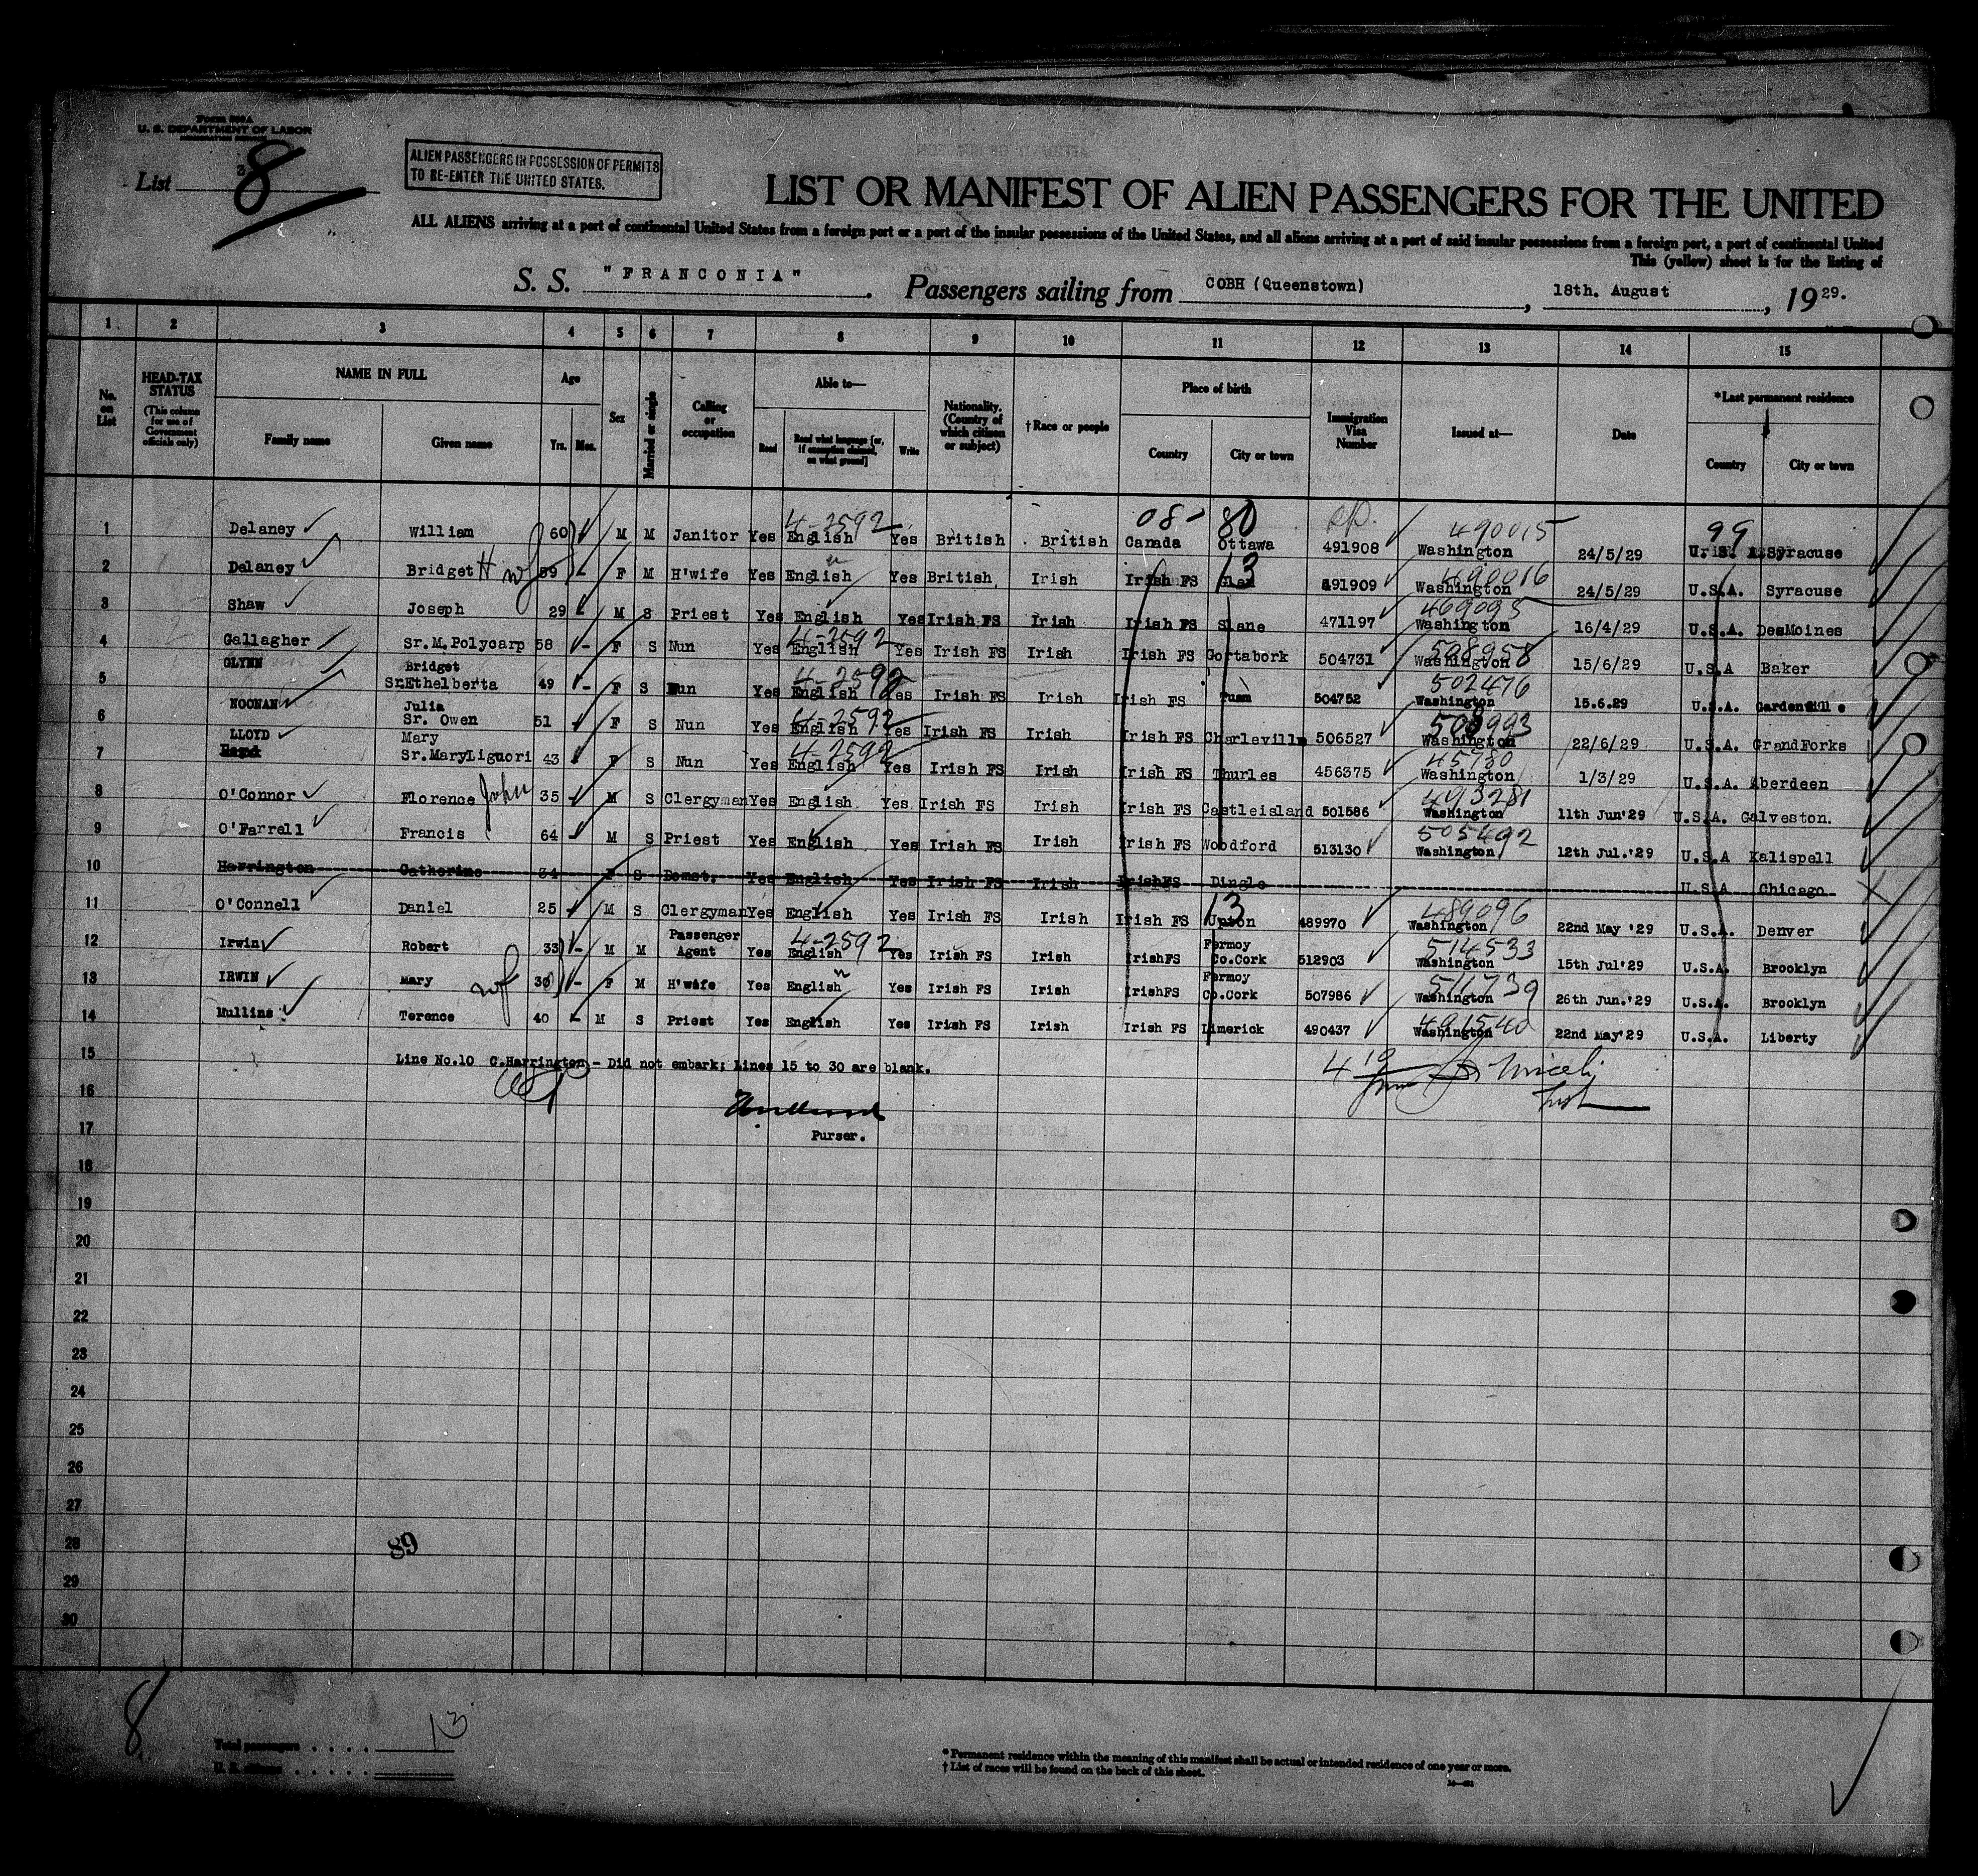 Form 500A
U. S. DEPARTMENT OF LABOR
List 3 8
ALIEN PASSENGERS IN POSSESSION OF PERMITS
TO RE-ENTER THE UNITED STATES.
LIST OR MANIFEST OF ALIEN PASSENGERS FOR THE UNITED
ALL ALIENS arriving at a port of continental United States from a foreign port or a port of the insular possessions of the United States, and all aliens arriving at a port of said insular possessions from a foreign port, a port of continental United
This (yellow) sheet is for the listing of
S. S. "FRANCONIA". Passengers sailing from COBH (Queenstown), 18th. August, 1929.
1 2 3 4 5 6 7 8 9 10 11 12 13 14 15
No. on List
HEAD-TAX STATUS (This column for use of Government officials only)
NAME IN FULL Family name Given name
Age Yrs. Mos.
Sex
Married or single
Calling or occupation
Able to— Read Read what language [or, if exemption claimed, on what ground] Write
Nationality. (Country of which citizen or subject)
†Race or people
Place of birth Country City or town
Immigration Visa Number
Issued at—
Date
*Last permanent residence Country City or town
08- 80 490015 99
1 Delaney William 60 M M Janitor Yes 4-2592 English Yes British British Canada Ottawa 491908 Washington 24/5/29 U.S.A. Syracuse
2 Delaney Bridget H wf 59 F M H'wife Yes English Yes British Irish Irish FS 13 491909 490016 Washington 24/5/29 U.S.A. Syracuse
3 Shaw Joseph 29 M S Priest Yes English Yes Irish FS Irish Irish FS Slane 471197 469095 Washington 16/4/29 U.S.A. DesMoines
4 Gallagher Sr.M.Polycarp 58 - F S Nun Yes 4-2592 English Yes Irish FS Irish Irish FS Gortabork 504731 508958 Washington 15/6/29 U.S.A Baker
GLYNN Bridget
5 Sr.Ethelberta 49 - F S Nun Yes 4-2592 English Yes Irish FS Irish Irish FS Tuam 504752 502476 Washington 15.6.29 U.S.A.
NOONAN Julia
6 Sr. Owen 51 F S Nun Yes 4-2592 English Yes Irish FS Irish Irish FS Charleville 506527 Washington 22/6/29 U.S.A. GrandForks
LLOYD Mary
7 Sr.MaryLiguori 43 F S Nun Yes 4-2592 English Yes Irish FS Irish Irish FS Thurles 456375 45780 Washington 1/3/29 U.S.A. Aberdeen
8 O'Connor Florence John 35 M S Clergyman Yes English Yes Irish FS Irish Irish FS Castleisland 501586 493281 Washington 11th Jun'29 U.S.A. Galveston.
9 O'Farrell Francis 64 M S Priest Yes English Yes Irish FS Irish Irish FS Woodford 513130 505492 Washington 12th Jul.'29 U.S.A Kalispell
10 Harrington Catherine 34 F S Domst. Yes English Yes Irish FS Irish IrishFS Dingle U.S.A Chicago
11 O'Connell Daniel 25 M S Clergyman Yes English Yes Irish FS Irish Irish FS 13 Upton 489970 489096 Washington 22nd May '29 U.S.A. Denver
12 Irwin Robert 33 - M M Passenger Agent Yes 4-2592 English Yes Irish FS Irish IrishFS Fermoy Co.Cork 512903 514533 Washington 15th Jul'29 U.S.A. Brooklyn
13 IRWIN Mary wf 30 - F M H'wife Yes English Yes Irish FS Irish IrishFS Fermoy Co.Cork 507986 Washington 26th Jun.'29 U.S.A. Brooklyn
14 Mullins Terence 40 - M S Priest Yes English Yes Irish FS Irish Irish FS Limerick 490437 491540 Washington 22nd May'29 U.S.A. Liberty
15 Line No.10 C.Harrington - Did not embark; Lines 15 to 30 are blank.
16
17 Purser.
18
19
20
21
22
23
24
25
26
27
28 89
29
30
8
Total passengers . . . . 13
U. S. citizens . . . . .
* Permanent residence within the meaning of this manifest shall be actual or intended residence of one year or more.
† List of races will be found on the back of this sheet.